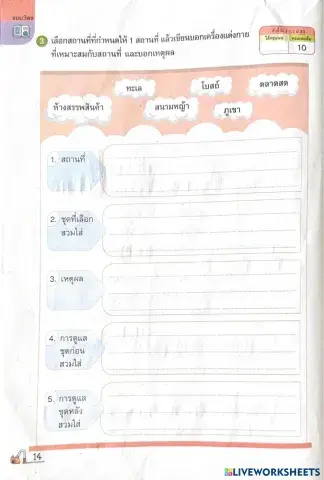 แบบวัดฯ
3 เลือกสถานที่ที่กำหนดให้ 1 สถานที่ แล้วเขียนบอกเครื่องแต่งกาย
ที่เหมาะสมกับสถานที่ และบอกเหตุผล
10
ทะเล
โบสถ์
ตลาดสด
ห้างสรรพสินค้า
สนามหญ้า
ภูเขา
1. สถานที่
2. ชุดที่เลือก
สวมใส่
3. เหตุผล
4. การดูแล
ชุดก่อน
สวมใส่
5. การดูแล
ชุดหลัง
สวมใส่
14
LIVEWORKSHEETS